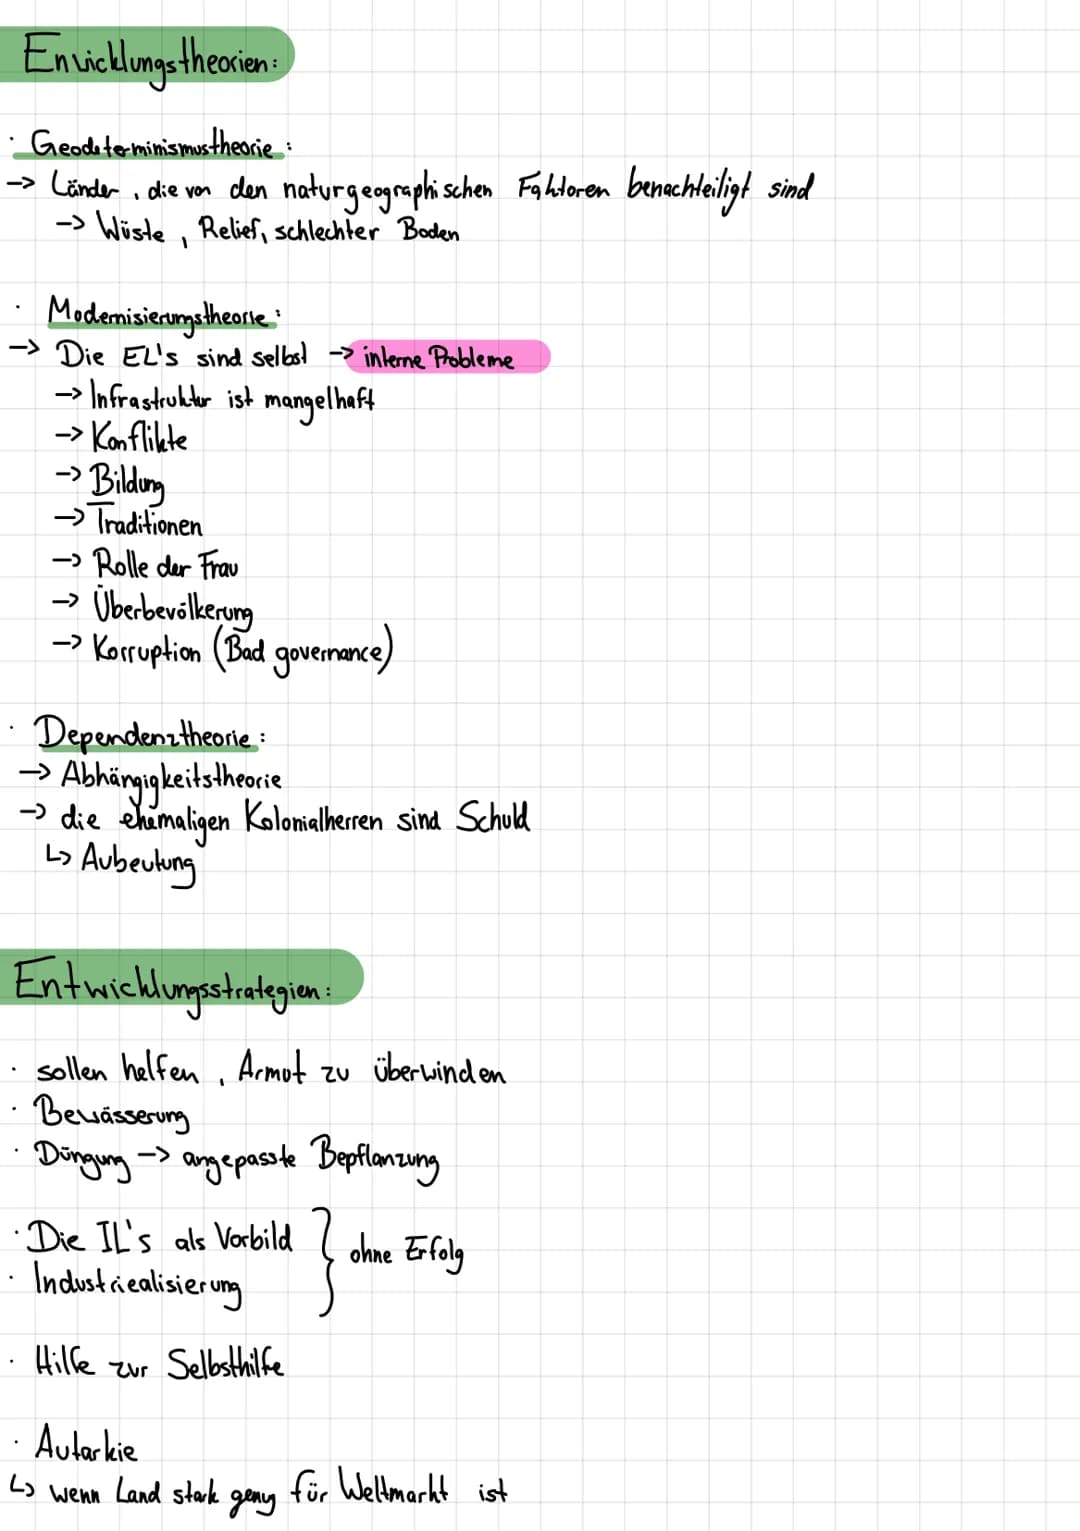 Enwicklungstheorien:
· Geodeterminismustheorie:
-> Länder, die von den naturgeographischen Faktoren benachteiligt sind
-> Wüste, Relief, schlechter Boden
· Modernisierungstheorie:
-> Die EL's sind selbst -> interne Probleme
-> Infrastruktur ist mangelhaft
-> Konflikte
-> Bildung
-> Traditionen
-> Rolle der Frau
-> Überbevölkerung
-> Korruption (Bad governance)
· Dependenztheorie:
-> Abhängigkeitstheorie
-> die ehemaligen Kolonialherren sind Schuld
↳ Aubeutung
Entwicklungsstrategien:
· sollen helfen, Armut zu überwinden
· Bewässerung
· Düngung -> angepasste Bepflanzung
· Die IL's als Vorbild } ohne Erfolg
· Industriealisierung
· Hilfe zur Selbsthilfe
· Autarkie
↳ wenn Land stark genug für Weltmarkt ist